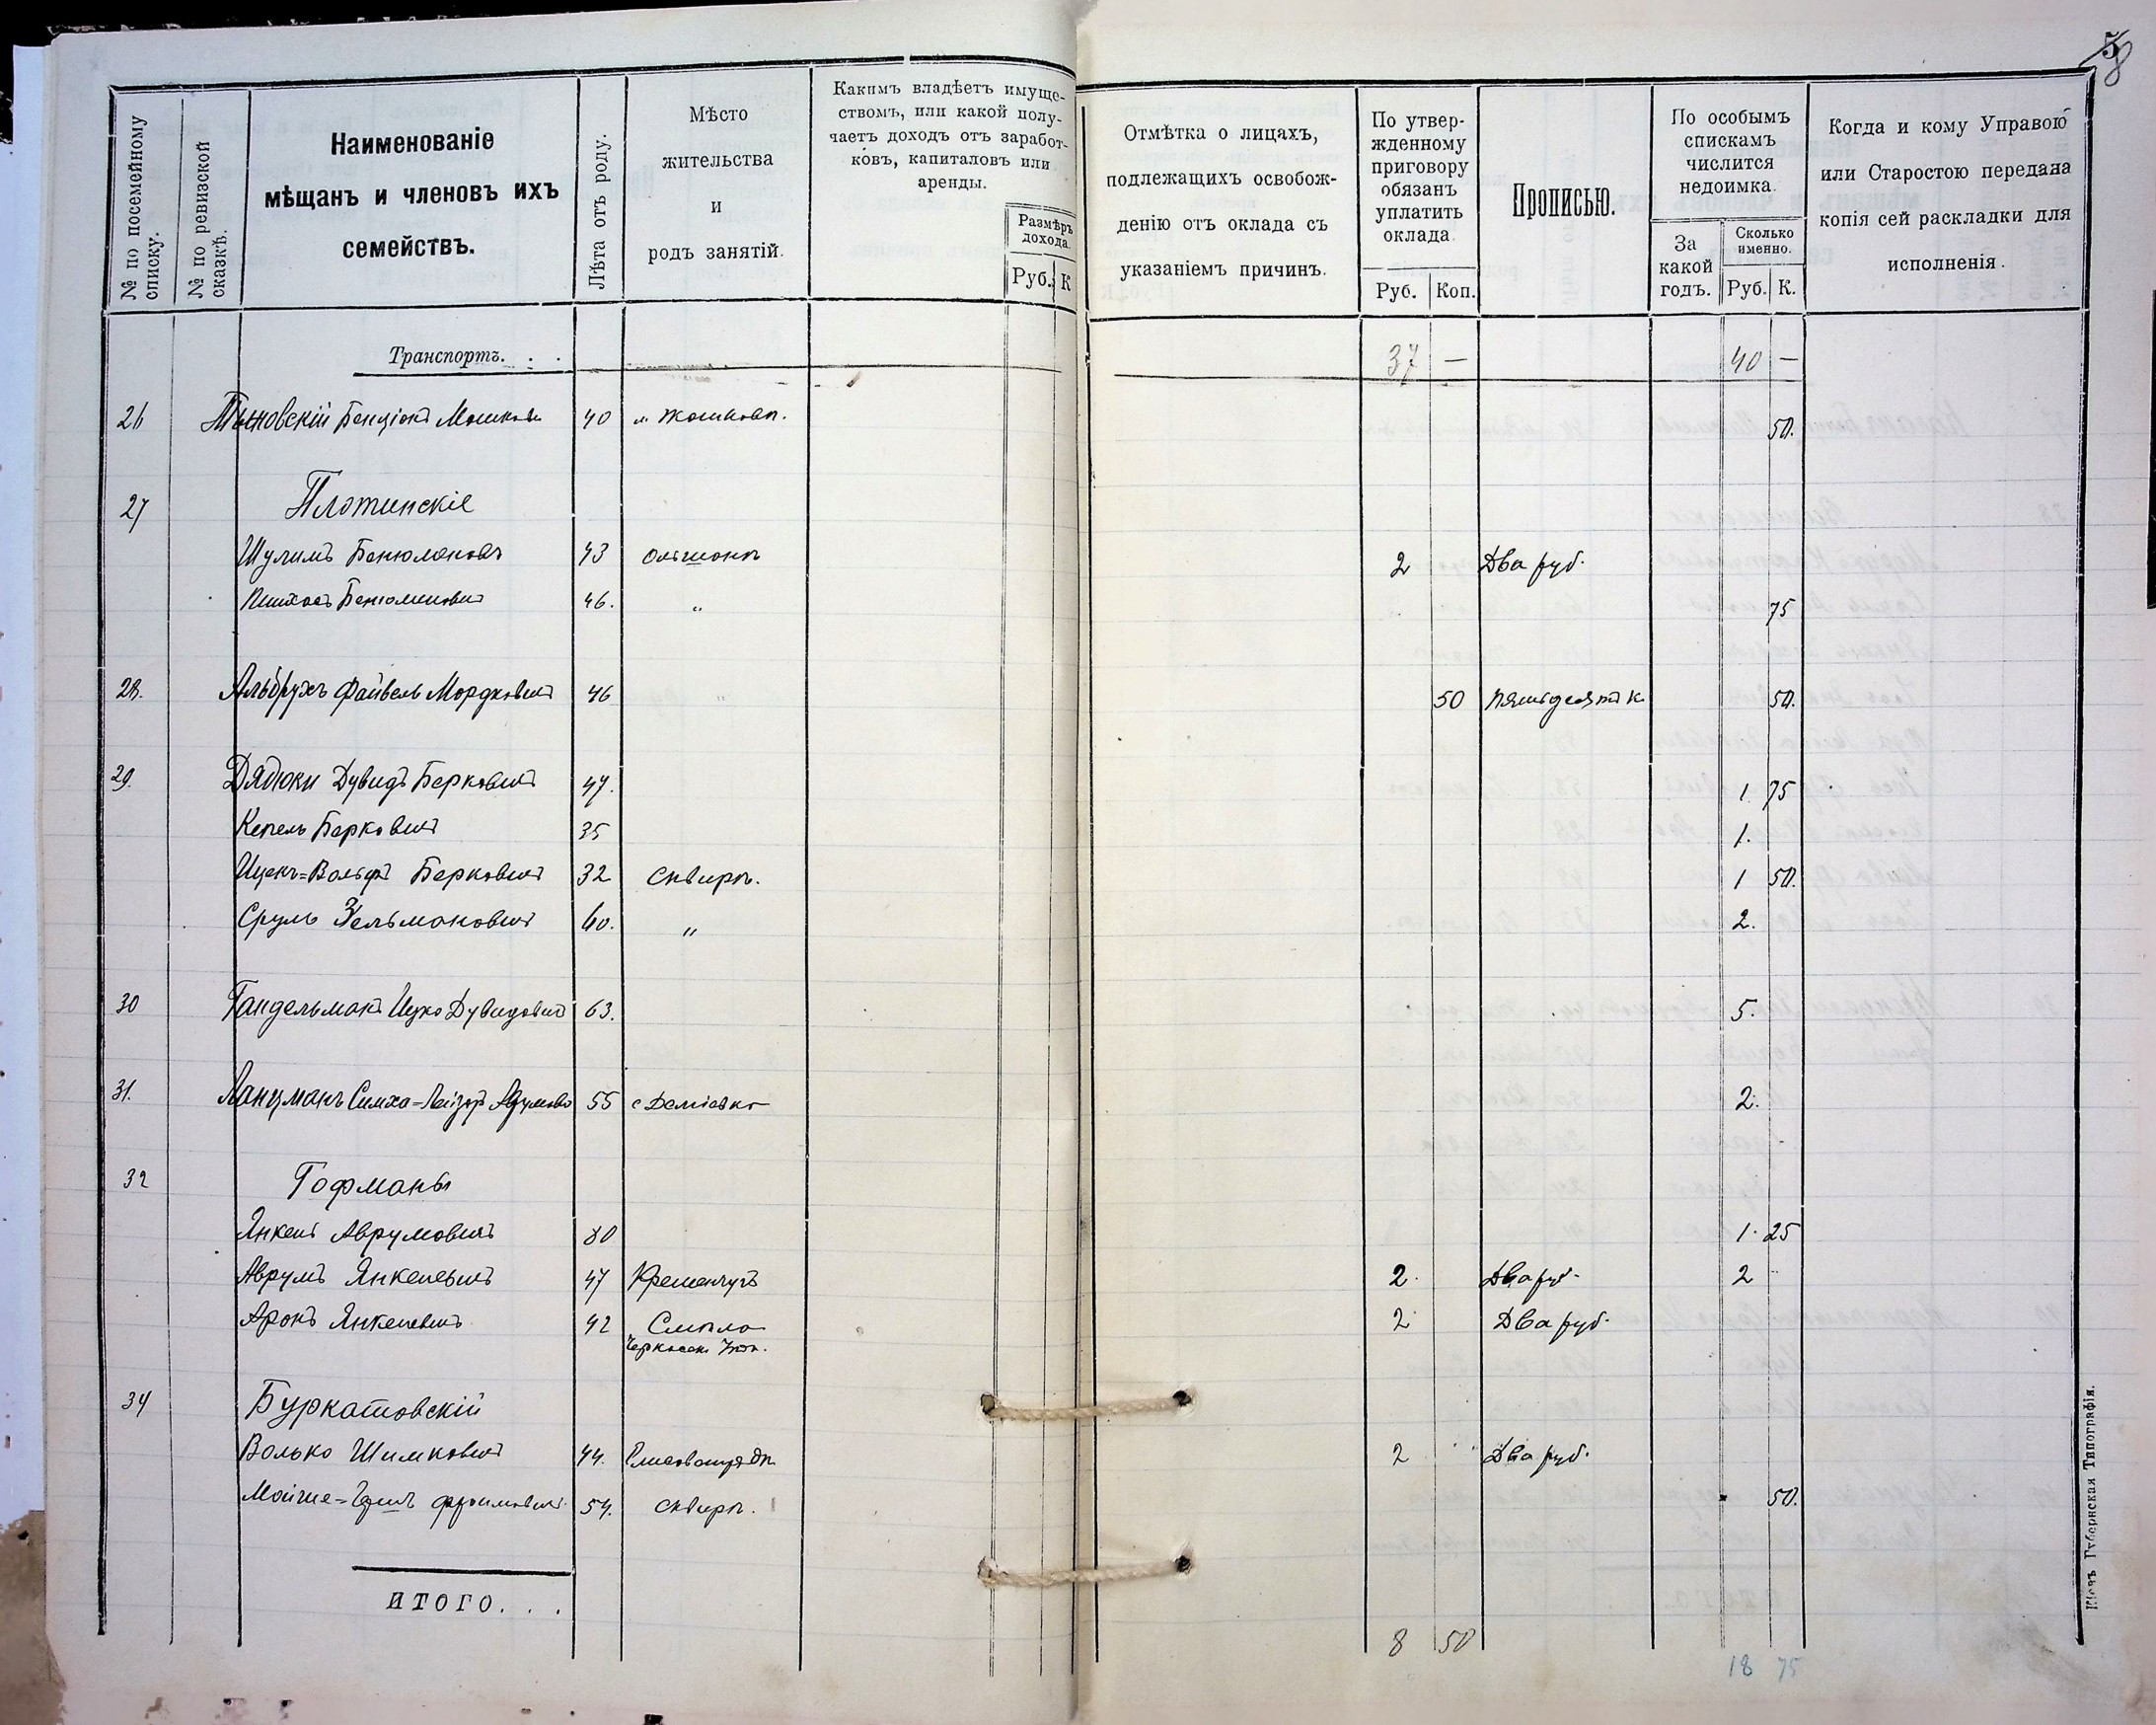 58
№ по посемейному списку.
№ по ревизской сказкѣ.
Наименованіе
мѣщанъ и членовъ ихъ
семействъ.
Лѣта отъ роду.
Мѣсто
жительства
и
родъ занятій.
Какимъ владѣетъ имуще-
ствомъ, или какой полу-
чаетъ доходъ отъ заработ-
ковъ, капиталовъ или
аренды.
Размѣръ
дохода.
Руб. К
Отмѣтка о лицахъ,
подлежащихъ освобож-
денію отъ оклада съ
указаніемъ причинъ.
По утвер-
жденному
приговору
обязанъ
уплатить
оклада.
Руб. Коп.
Прописью.
По особымъ
спискамъ
числится
недоимка.
За
какой
годъ.
Сколько
именно.
Руб. К.
Когда и кому Управою
или Старостою передана
копія сей раскладки для
исполненія.
Транспортъ. . . 37 — 40 —
26 Бенціонъ Мошковъ 40 м. Жашковъ. 50.
27 Плотинскіе
Шулимъ Бенюминовъ 43 Ольшана 2 Два руб.
Пинхасъ Бенюминовичъ 46. „ 75
28. Альбрухъ Файвель Мордковичъ 46 „ 50 пятьдесятъ к 50.
29. Дядюки Дувидъ Берковичъ 47. 1. 75
Кепель Берковичъ 35 1.
Ицекъ=Вольфъ Берковичъ 32 Сквира. 1 50.
Сруль Зельмановичъ 60. „ 2.
30 Гандельманъ Ицко Дувидовичъ 63. 5.
31. Ланцманъ Симха=Лейзоръ 55 с Деміевка 2.
32 Гофманы
Янкель Аврумовичъ 80 1. 25
Аврумъ Янкелевичъ 47 Кременчугъ 2. Два руб. 2
Аронъ Янкелевичъ 42 Смѣла 2 Два руб.
Черкасск. Уѣз.
34 Буркатовскій
Волько Шимковичъ 44. Елисаветградъ 2 Два руб.
Мойше= Фроимовичъ. 54. Сквира. 50.
ИТОГО. . .
8 50
18 75
Кіевъ Губернская Типографія.